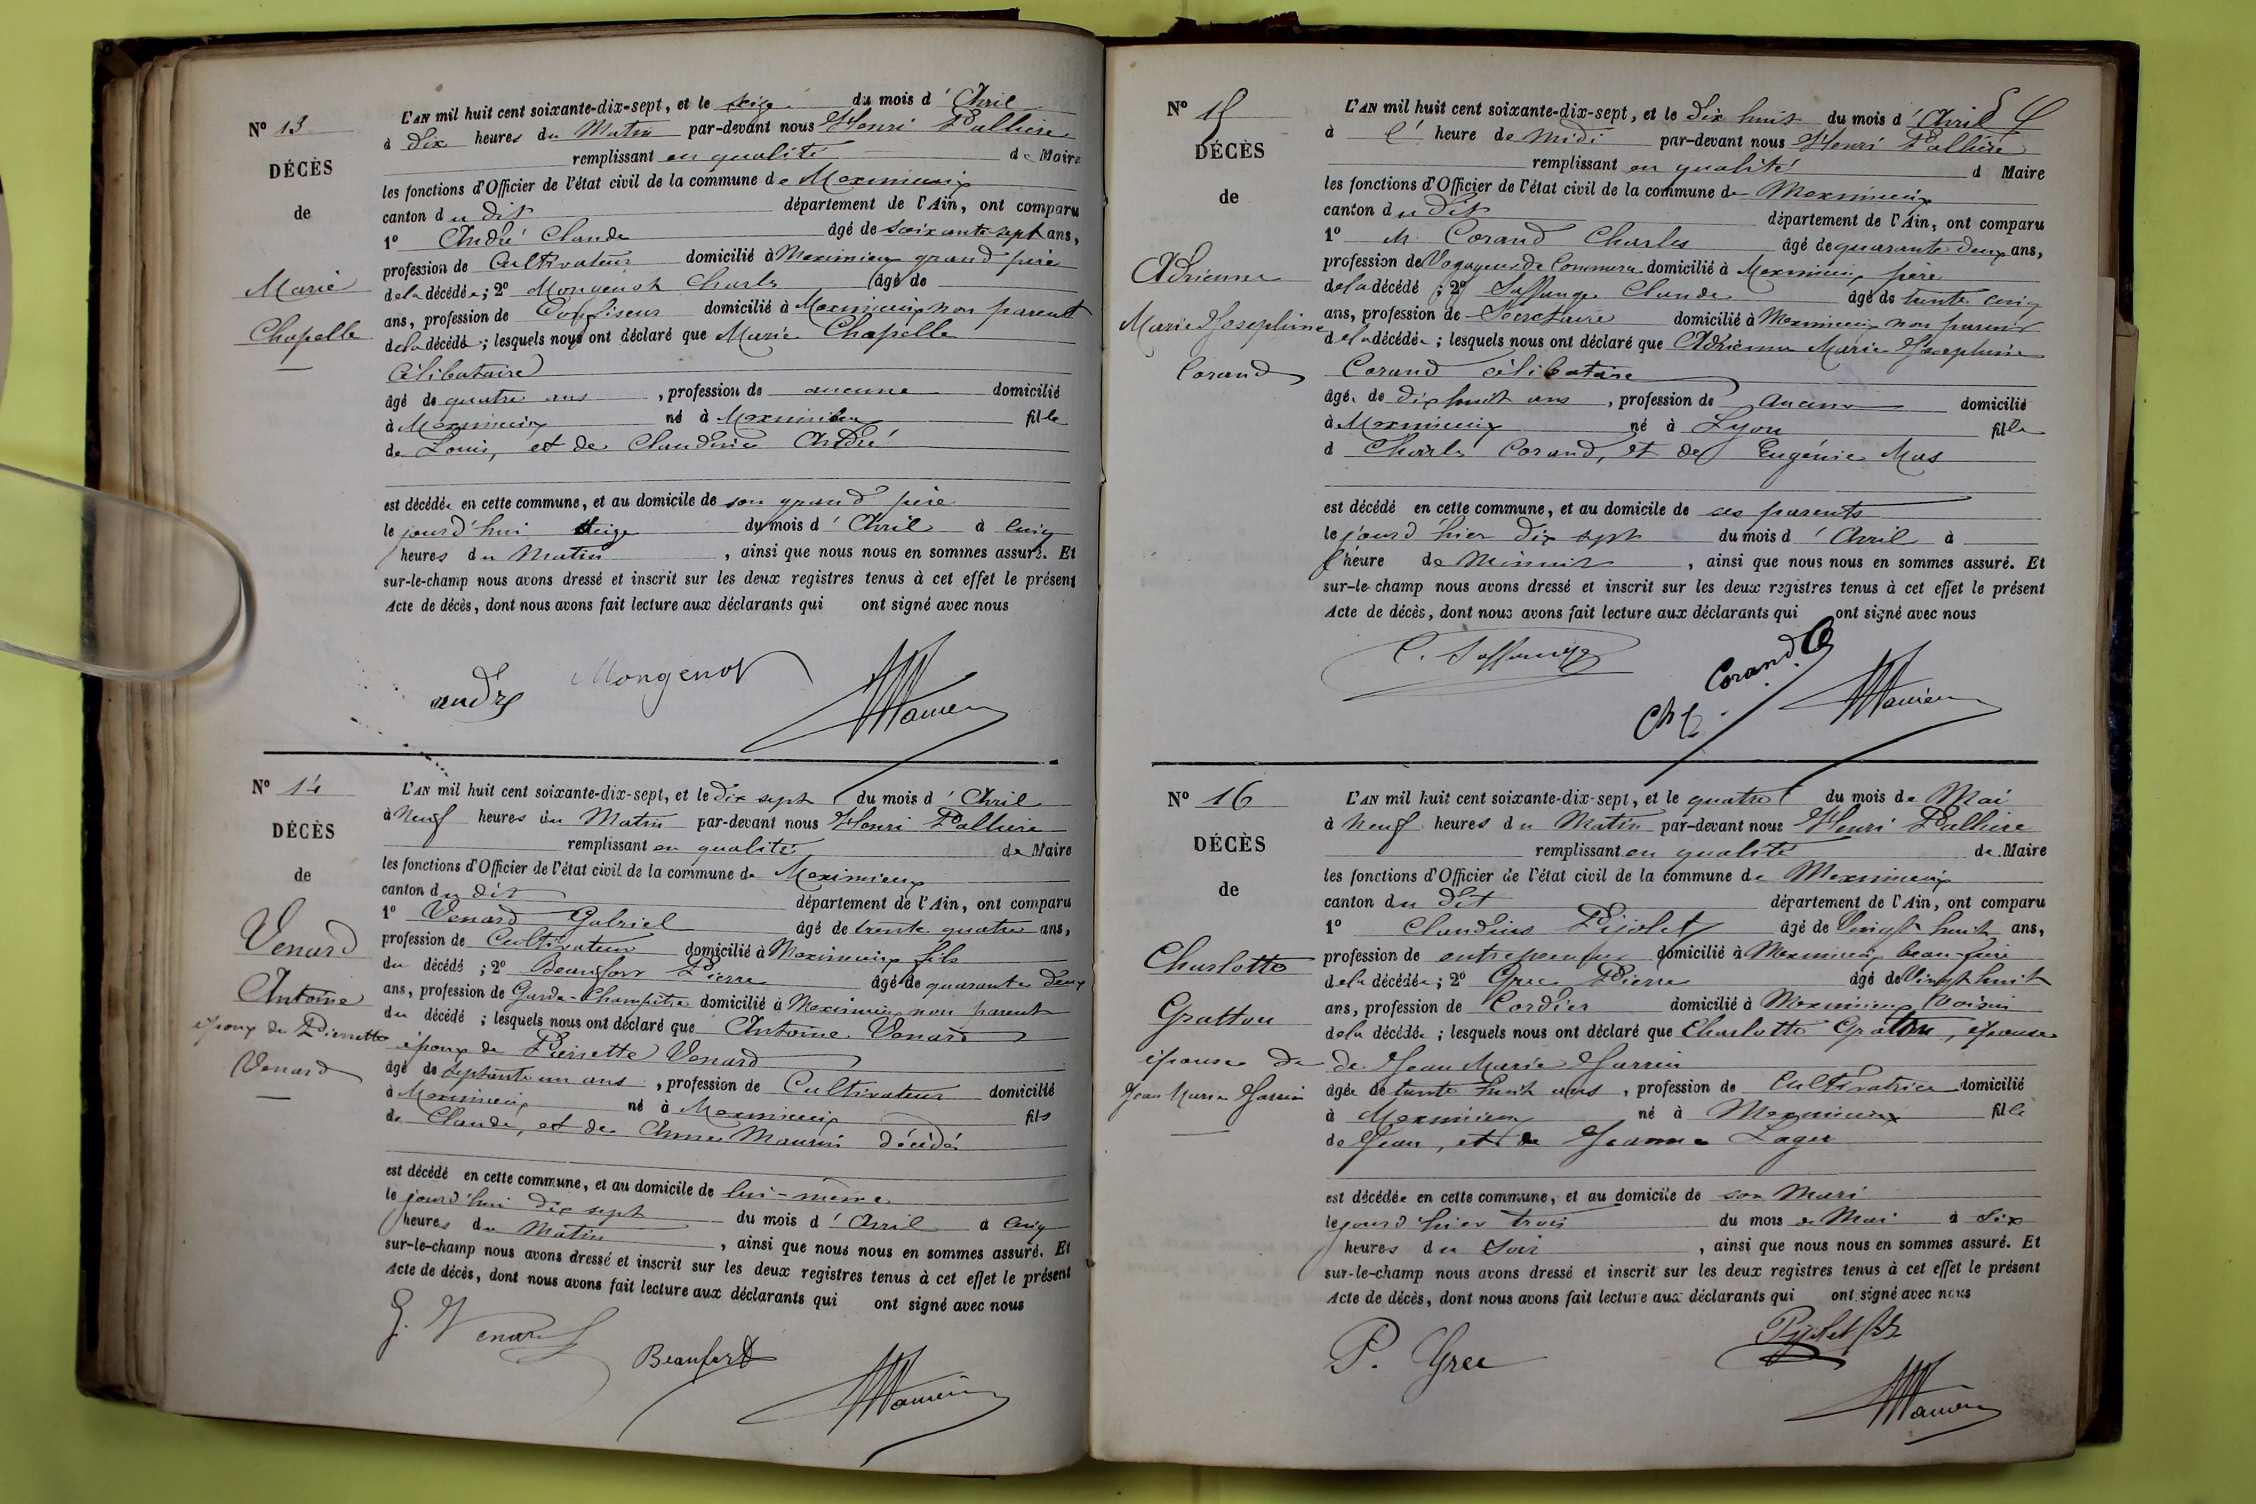 N° 13
DÉCÈS
de
Marie
Chapelle
L'AN mil huit cent soixante-dix-sept, et le seize du mois d'Avril
à dix heures du Matin par-devant nous Henri Pallière
remplissant en qualité de Maire
les fonctions d'Officier de l'état civil de la commune de Meximieux
canton du dit département de l'Ain, ont comparu
1° André Claude âgé de soixante sept ans,
profession de Cultivateur domicilié à Meximieux grand père
de la décédée; 2° Mongenot Charles âgé de
ans, profession de Confiseur domicilié à Meximieux non parent
de la décédé; lesquels nous ont déclaré que Marie Chapelle
Célibataire
âgé de quatre ans, profession de aucune domicilié
à Meximieux né à Meximieux fille
de Louis, et de Claudine André
est décédée en cette commune, et au domicile de son grand père
le jourd'hui seize du mois d'Avril à cinq
heures du Matin, ainsi que nous nous en sommes assuré. Et
sur-le-champ nous avons dressé et inscrit sur les deux registres tenus à cet effet le présent
Acte de décès, dont nous avons fait lecture aux déclarants qui ont signé avec nous
andré Mongenot
N° 14
DÉCÈS
de
Venard
Antoine
époux de Pierrette
Venard
L'AN mil huit cent soixante-dix-sept, et le dix sept du mois d'Avril
à Neuf heures du Matin par-devant nous Henri Pallière
remplissant en qualité de Maire
les fonctions d'Officier de l'état civil de la commune de Meximieux
canton du dit département de l'Ain, ont comparu
1° Venard Gabriel âgé de trente quatre ans,
profession de Cultivateur domicilié à Meximieux fils
du décédé; 2° Beaufort Pierre âgé de quarante deux
ans, profession de Garde-Champêtre domicilié à Meximieux non parent
du décédé; lesquels nous ont déclaré que Antoine Venard
époux de Pierrette Venard
âgé de septante un ans, profession de Cultivateur domicilié
à Meximieux né à Meximieux fils
de Claude, et de Anne Maurin décédés
est décédé en cette commune, et au domicile de lui-même
le jourd'hui dix sept du mois d'Avril à cinq
heures du Matin, ainsi que nous nous en sommes assuré. Et
sur-le-champ nous avons dressé et inscrit sur les deux registres tenus à cet effet le présent
Acte de décès, dont nous avons fait lecture aux déclarants qui ont signé avec nous
G. Venard
Beaufort
N° 15
DÉCÈS
de
Adrienne
Marie Joséphine
Corand
L'AN mil huit cent soixante-dix-sept, et le Dix huit du mois d'Avril
à l' heure de midi par-devant nous Henri Pallière
remplissant en qualité d Maire
les fonctions d'Officier de l'état civil de la commune de Meximieux
canton du dit département de l'Ain, ont comparu
1° M. Corand Charles âgé de quarante deux ans,
profession de Voyageur de Commerce domicilié à Meximieux père
de la décédé; 2° Saffange Claude âgé de trente cinq
ans, profession de Secrétaire domicilié à Meximieux non parent
de la décédée; lesquels nous ont déclaré que Adrienne Marie Joséphine
Corand célibataire
âgée de dix huit ans, profession de Aucune domicilié
à Meximieux né à Lyon fille
d Charles Corand, et de Eugénie Mas
est décédé en cette commune, et au domicile de ses parents
le jourd'hier dix sept du mois d'Avril à
l'heure de Minuit, ainsi que nous nous en sommes assuré. Et
sur-le-champ nous avons dressé et inscrit sur les deux registres tenus à cet effet le présent
Acte de décès, dont nous avons fait lecture aux déclarants qui ont signé avec nous
C. Saffange
Ch. Corand
N° 16
DÉCÈS
de
Charlotte
Gratton
épouse de
Jean Marie Garrin
L'AN mil huit cent soixante-dix-sept, et le quatre du mois de Mai
à Neuf heures du Matin par-devant nous Henri Pallière
remplissant en qualité de Maire
les fonctions d'Officier de l'état civil de la commune de Meximieux
canton du dit département de l'Ain, ont comparu
1° Claudius Pijolet âgé de Vingt huit ans,
profession de entrepreneur domicilié à Meximieux beau-frère
de la décédée; 2° Grec Pierre âgé de Vingt huit
ans, profession de Cordier domicilié à Meximieux voisin
de la décédée; lesquels nous ont déclaré que Charlotte Gratton, épouse
de Jean Marie Garrin
âgée de trente huit ans, profession de Cultivatrice domicilié
à Meximieux né à Meximieux fille
de Jean, et de Jeanne Lager
est décédée en cette commune, et au domicile de son Mari
le jourd'hier trois du mois de Mai à Six
heures du Soir, ainsi que nous nous en sommes assuré. Et
sur-le-champ nous avons dressé et inscrit sur les deux registres tenus à cet effet le présent
Acte de décès, dont nous avons fait lecture aux déclarants qui ont signé avec nous
P. Grec Pijolet